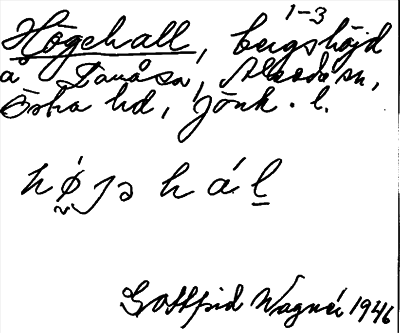 1-3
Högehall, bergshöjd
å Tanåsa, sn,
Östra hd, Jönk. l.
hǿjə hál
Gottfrid Wagnér 1946